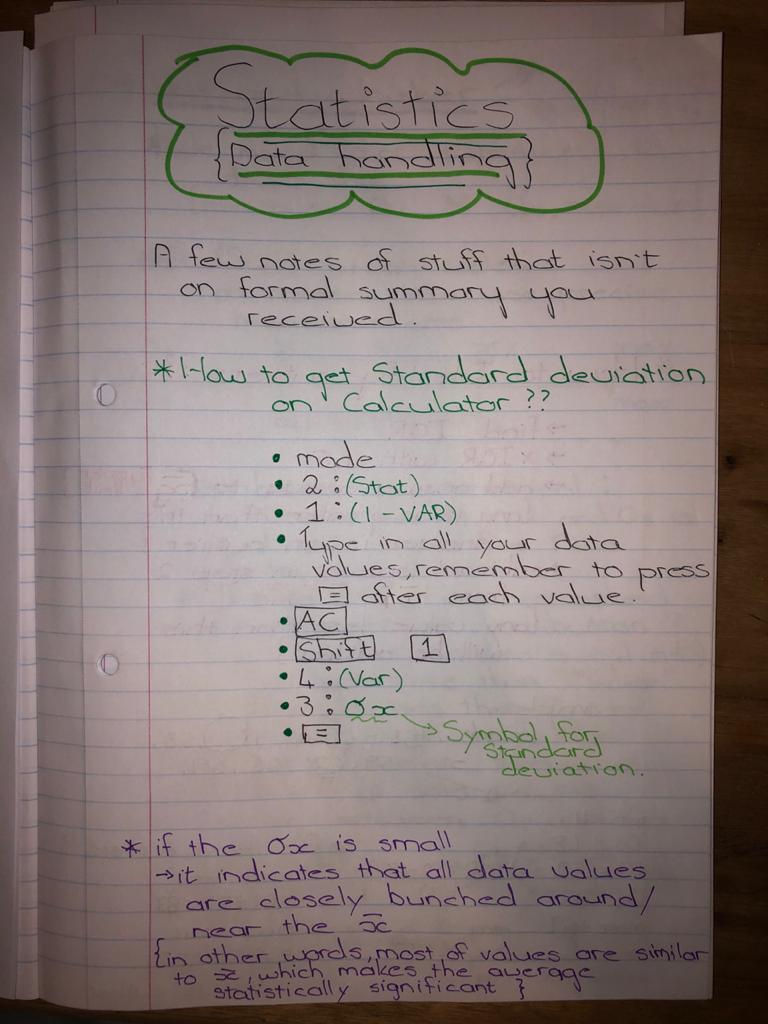 Statistics
{Data handling}
A few notes of stuff that isn't
on formal summary you
received.
* How to get Standard deviation
on Calculator ??
• mode
• 2 : (Stat)
• 1 : (1-VAR)
• Type in all your data
values, remember to press
= after each value.
• AC
• Shift 1
• 4 : (Var)
• 3 : σx → Symbol for
standard
deviation.
• =
* if the σx is small
→ it indicates that all data values
are closely bunched around/
near the x̄
{in other words, most of values are similar
to x̄, which makes the average
statistically significant }